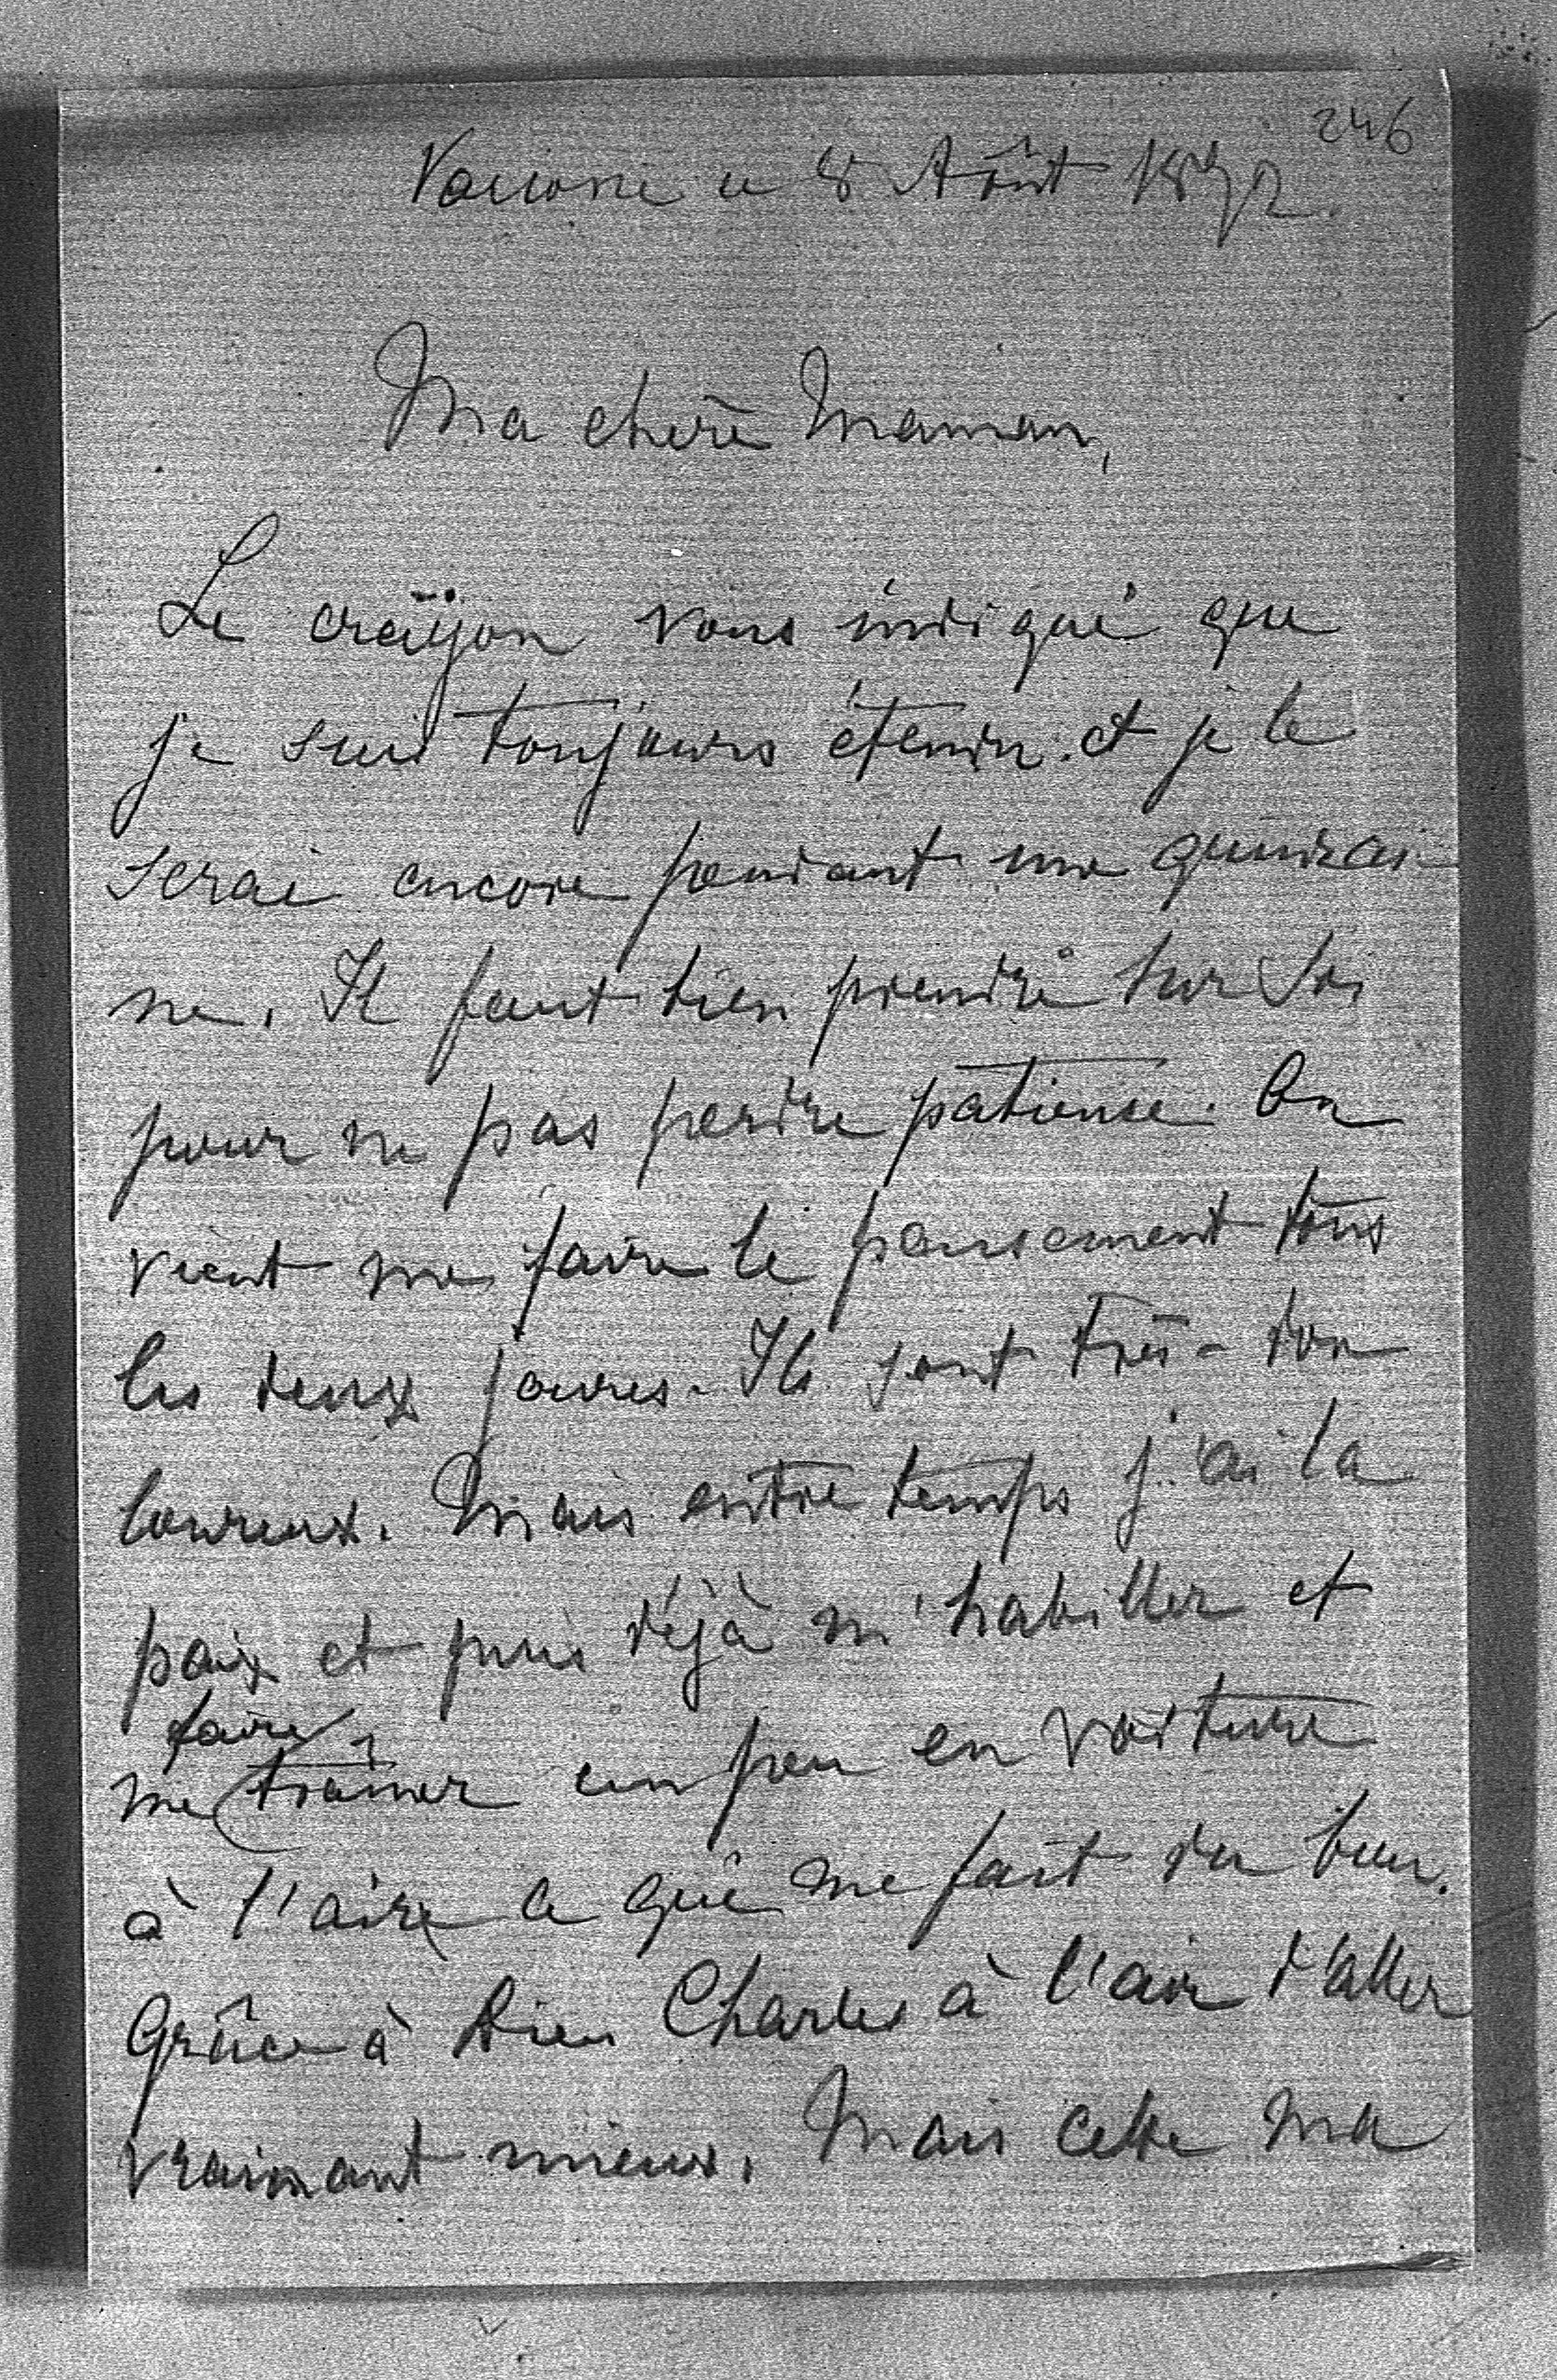 246
ce 8 Août 1892
Ma chère Maman,
Le craÿon vous indique que
je suis toujours étendu et je le
serai encore pendant une quinzai-
ne. Il faut bien prendre sur soi
pour ne pas perdre patience. On
vient me faire le pansement tous
les deux jours. Ils sont très-dou
loureux. Mais entre temps j'ai la
paix et puis déjà m'habiller et
faire
me trainer un peu en voiture
à l'aire ce qui me fait du bien.
Grâce à Dieu Charles à l'air d'aller
vraimant mieux. Mais cette ma